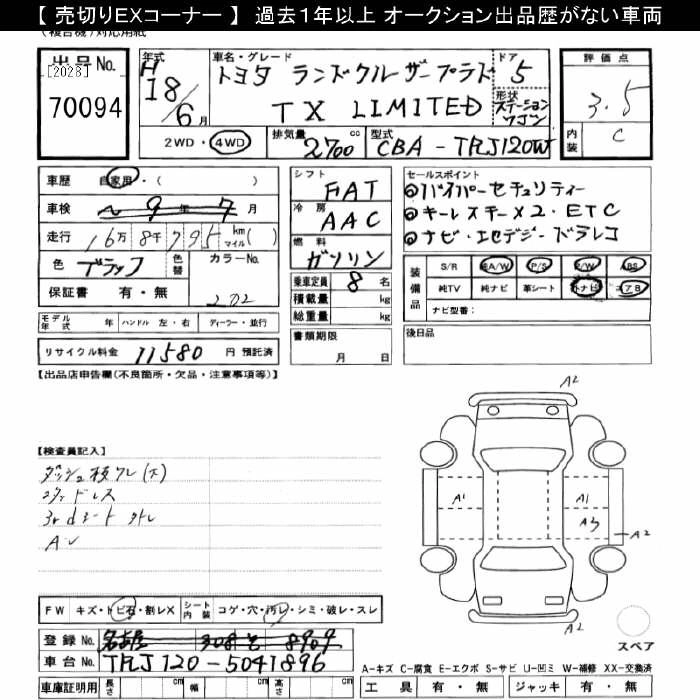 【 売切りEXコーナー 】 過去1年以上 オークション出品歴がない車両
(複合機)対応用紙
出品No.
[2028]
70094
年式 H 18/6月
車名・グレード トヨタ ランドクルーザープラド
TX LIMITED
ドア 5
形状 ステーションワゴン
評価点 3.5
内装 C
2WD・4WD
排気量 2700 cc
型式 CBA - TRJ120W
車歴 自家用・( )
車検 9年7月
走行 16万8千795 km マイル( )
色 ブラック 色替
カラーNo. 202
保証書 有・無
シフト FAT
冷房 AAC
燃料 ガソリン
乗車定員 8 名
積載量 kg
総重量 kg
セールスポイント
◎ハイパーセキュリティー
◎キーレスキー×2・ETC
◎ナビ・1セグデジ・ドラレコ
装備品
S/R A/W P/S P/W ABS
純TV 純ナビ 革シート 外ナビ エアB
ナビ型番:
モデル年式 年 ハンドル 左・右 ディーラー・並行
リサイクル料金 11580 円 預託済
書類期限 月 日
後日品
【出品店申告欄(不良箇所・欠品・注意事項等)】
【検査員記入】
スタッドレス
3rdシート
A2
A1 A1
A3 A2
A2
スペア
FW キズ・トビ石・割レX シート内装 コゲ・穴・汚レ・シミ・破レ・スレ
登録No. 名古屋 308 そ 8909
車台No. TRJ120-5041896
車庫証明用 長さ cm 幅 cm 高さ cm
A-キズ C-腐食 E-エクボ S-サビ U-凹ミ W-補修 XX-交換済
工具 有・無 ジャッキ 有・無